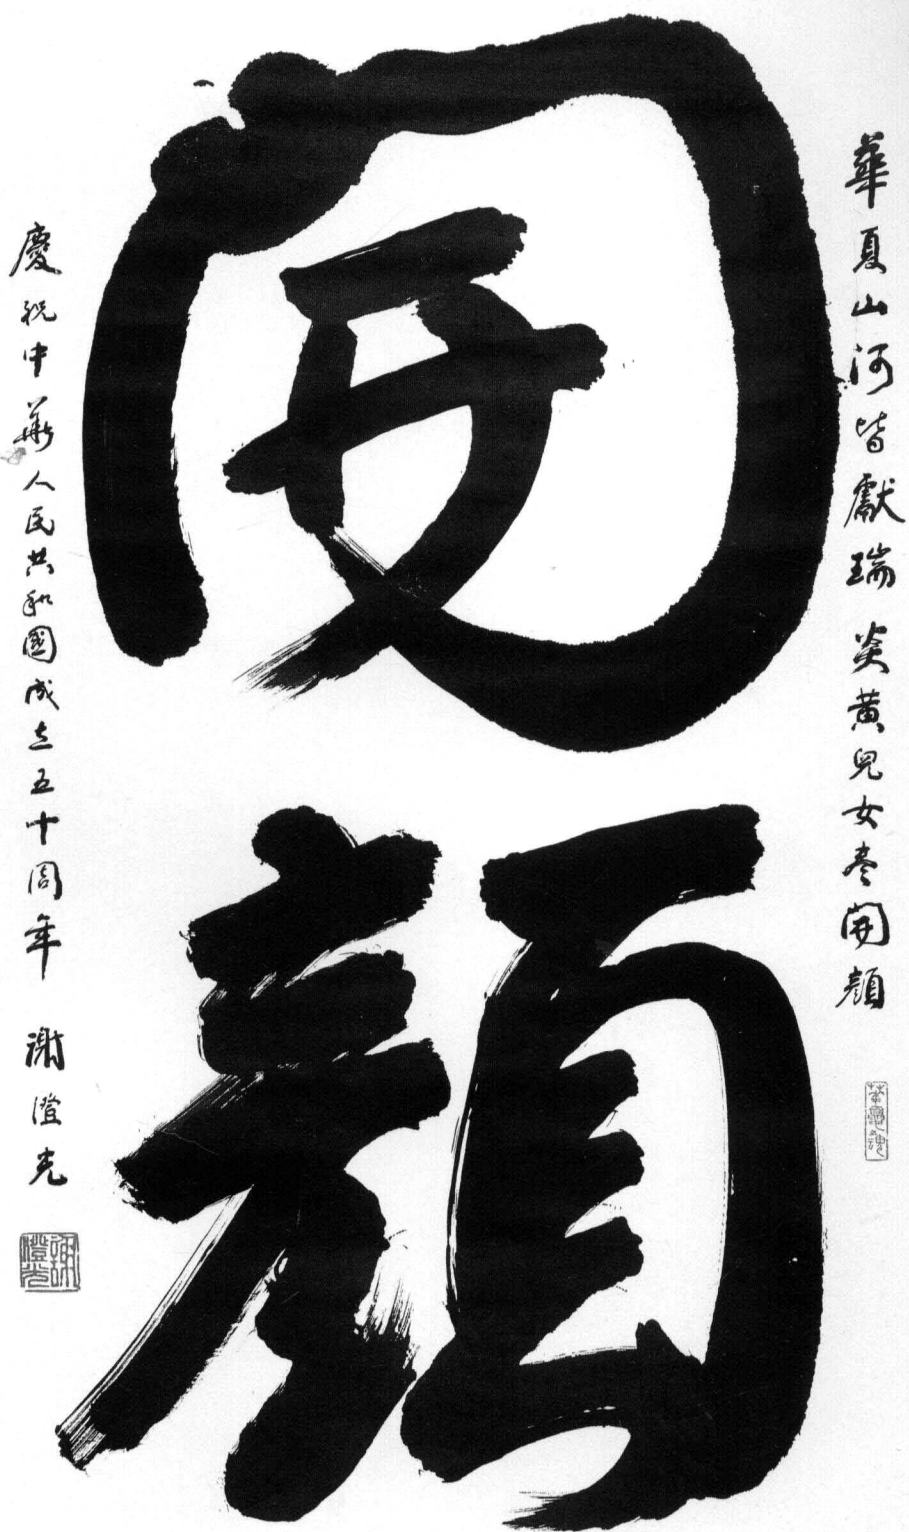 華夏山河皆獻瑞炎黃兒女盡開顏
開顏
慶祝中華人民共和國成立五十周年 謝澄光
謝澄光